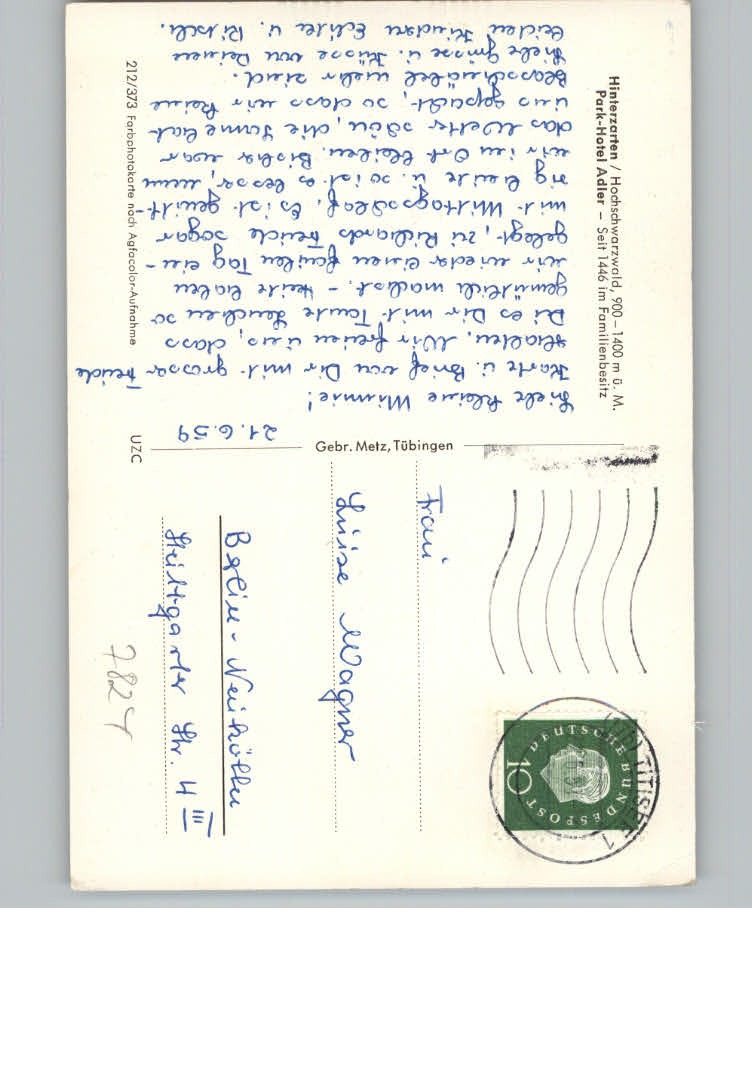 Hinterzarten / Hochschwarzwald, 900 – 1400 m ü. M.
Park-Hotel Adler – Seit 1446 im Familienbesitz
21.6.59
Liebe kleine Mimmie!
Karte u. Brief von Dir mit grosser Freude
erhalten. Wir freuen uns, dass
Du es Dir mit Tante Lenchen so
gemütlich machst. – Heute haben
wir wieder einen faulen Tag ein-
gelegt, zu Richards Freude sogar
mit Mittagsschlaf. Es ist gewitt-
rig heute u. so ist es besser, wenn
wir im Ort bleiben. Bisher war
das Wetter schön, die Sonne hat
uns gepackt, so dass wir keine
Blasschnäbel mehr sind.
Liebe Grüsse u. Küsse von Deinen
beiden Kindern Echen u. Ritsch.
212/373 Farbphotokarte nach Agfacolor-Aufnahme
Gebr. Metz, Tübingen
UZC
Frau
Luise Wagner
Berlin-Neukölln
Stuttgarter Str. 4 III
7824
DEUTSCHE BUNDESPOST
10
TITISEE 1